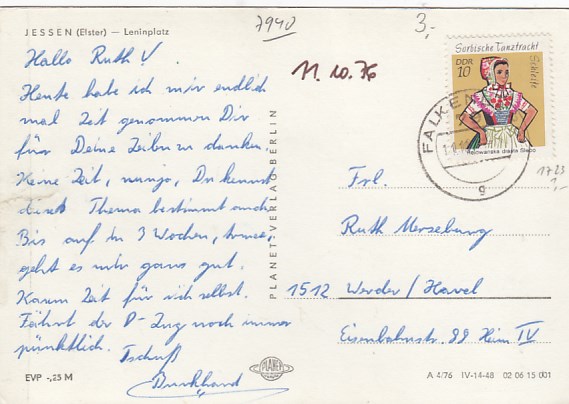 JESSEN (Elster) — Leninplatz
7940
3,-
Hallo Ruth
11.10.76
Sorbische Tanztracht
DDR
10
Schleife
Heute habe ich mir endlich
mal Zeit genommen Dir
für Deine Zeilen zu danken.
Keine Zeit, naja, Du kennst
dieses Thema bestimmt auch.
Bis auf in 3 Wochen,
geht es mir ganz gut.
Kaum Zeit für sich selbst.
Fährt der D-Zug noch immer
pünktlich. Tschüß
Burkhard
FALKEN
g
1723
1,-
Frl.
Ruth Merseburg
1512 Werder/Havel
Eisenbahnstr. 99 Heim IV
PLANET-VERLAG BERLIN
EVP -,25 M
PLANET
A 4/76 IV-14-48 02 06 15 001